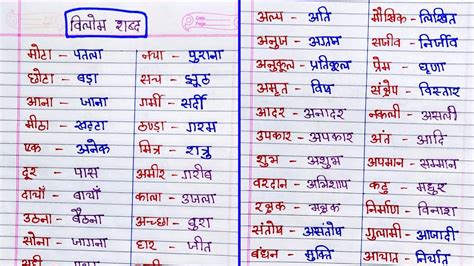 विलोम शब्द
मोटा - पतला
छोटा - बड़ा
आना - जाना
मीठा - खट्टा
एक - अनेक
दूर - पास
दायाँ - बायाँ
उठना - बैठना
सोना - जागना
नया - पुराना
सच - झूठ
गर्मी - सर्दी
ठण्डा - गरम
मित्र - शत्रु
अमीर - गरीब
काला - उजला
अच्छा - बुरा
हार - जीत
अल्प - अति
अनुज - अग्रज
अनुकूल - प्रतिकूल
अमृत - विष
आदर - अनादर
उपकार - अपकार
शुभ - अशुभ
वरदान - अभिशाप
रक्षक - भक्षक
संतोष - असंतोष
बंधन - मुक्ति
मौखिक - लिखित
सजीव - निर्जीव
प्रेम - घृणा
संक्षेप - विस्तार
नकली - असली
अंत - आदि
अपमान - सम्मान
कटु - मधुर
निर्माण - विनाश
गुलामी - आजादी
आयात - निर्यात